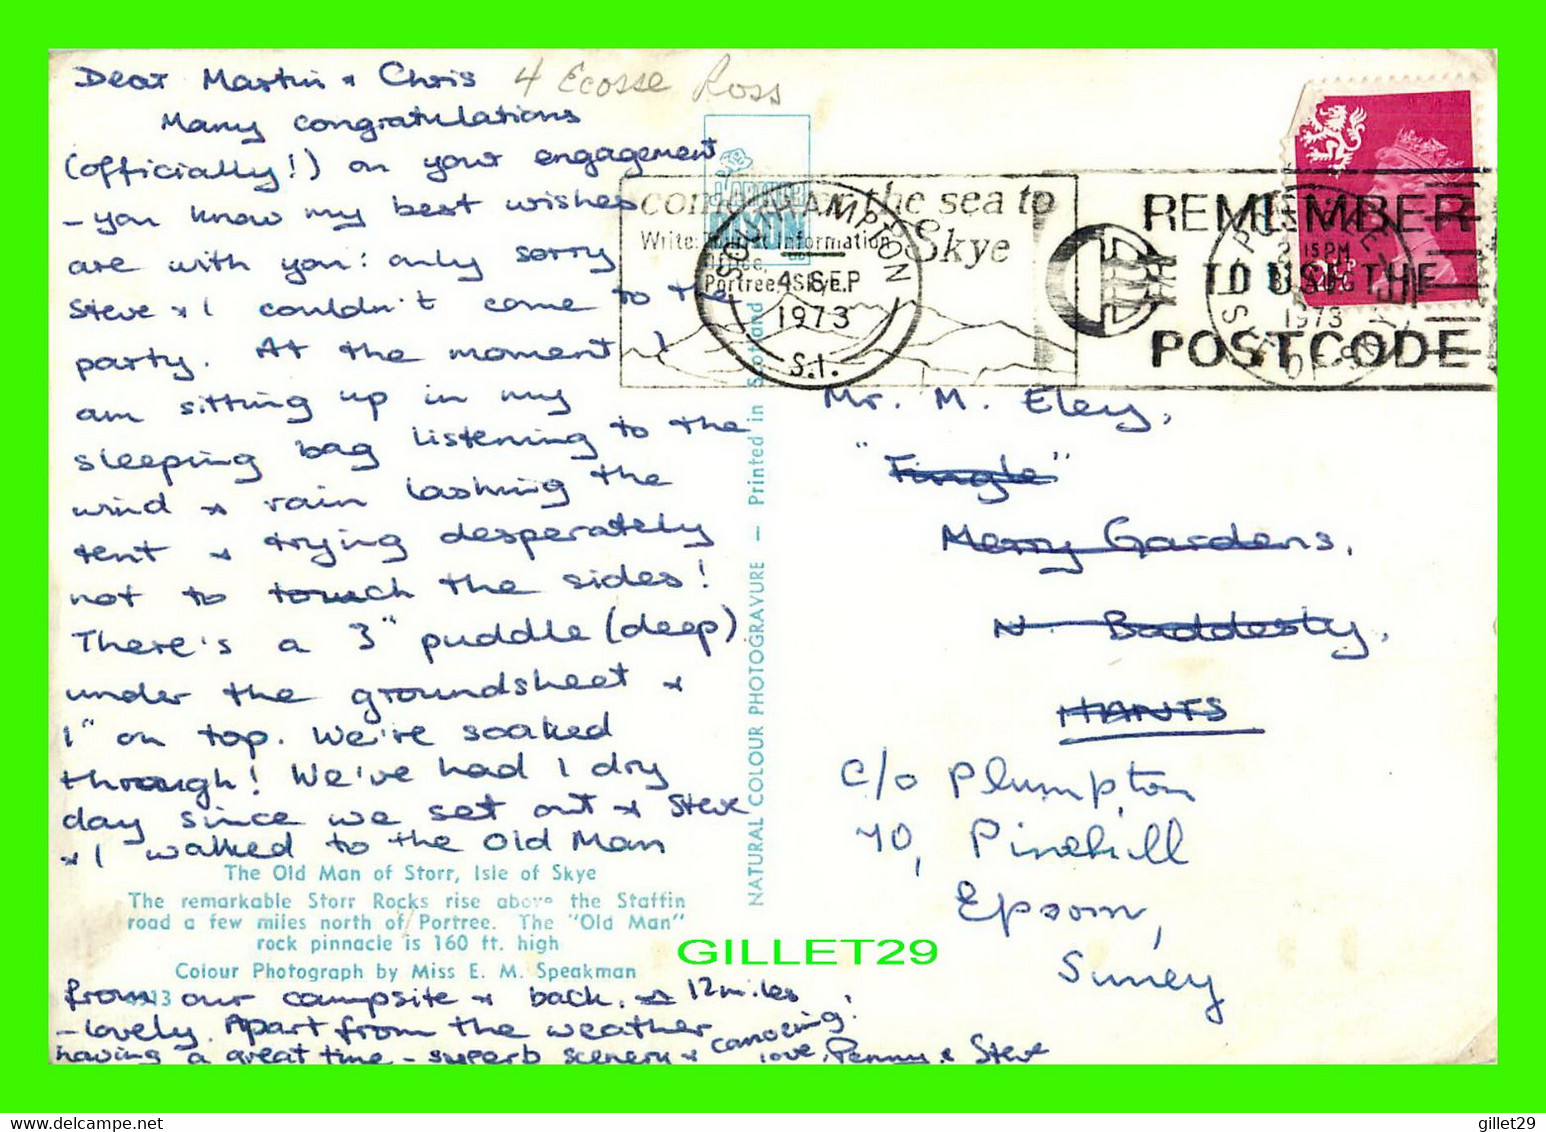 Dear Martin & Chris
4 Ecosse Ross
Many congratulations
(officially!) on your engagement
- you know my best wishes
are with you: only sorry
Steve & I couldn't come to the
party. At the moment I
am sitting up in my
sleeping bag listening to the
wind & rain lashing the
tent & trying desperately
not to touch the sides!
There's a 3" puddle (deep)
under the groundsheet &
1" on top. We're soaked
through! We've had 1 dry
day since we set out & Steve
& I walked to the Old Man
The Old Man of Storr, Isle of Skye
The remarkable Storr Rocks rise above the Staffin
road a few miles north of Portree. The "Old Man"
rock pinnacle is 160 ft. high
Colour Photograph by Miss E. M. Speakman
from our campsite & back. 12 miles
- lovely. Apart from the weather
having a great time - superb scenery & canoeing.
love, Penny & Steve
NATURAL COLOUR PHOTOGRAVURE — Printed in Scotland
come over the sea to
Skye
Write: Tourist Information
Office,
Portree, Skye.
SOUTHAMPTON
4 SEP
1973
S.I.
REMEMBER
TO USE THE
POSTCODE
2 15 PM
1973
Mr. M. Eley,
"Fingle"
Merry Gardens,
N. Baddesly,
HANTS
c/o Plumpton
70, Pinehill
Epsom,
Surrey
GILLET29
gillet29